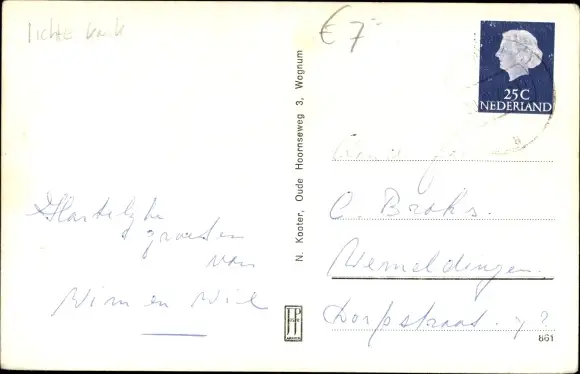 lichte knik
€ 7,-
25 C
NEDERLAND
Hartelijke
groeten
van
Wim en Wil
N. Kooter, Oude Hoornseweg 3, Wognum
C. Broks.
Wemeldingen.
Dorpstraat. 7?
861